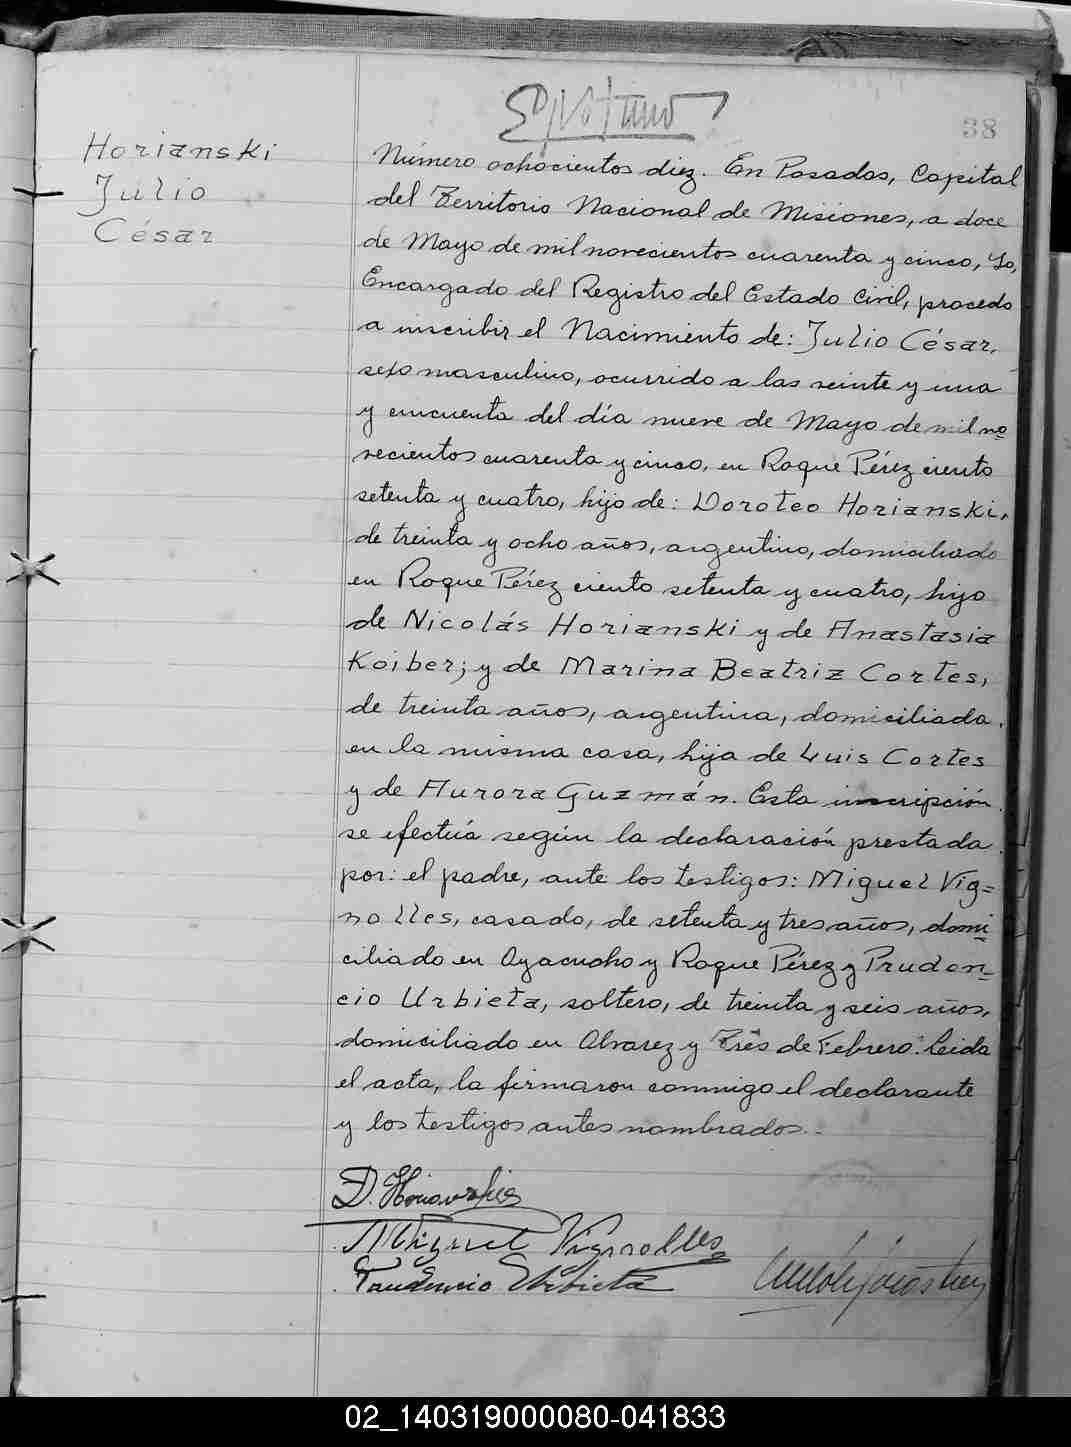 38
Horianski
Julio
César
Número ochocientos diez. En Posadas, Capital
del Territorio Nacional de Misiones, a doce
de Mayo de mil novecientos cuarenta y cinco, Yo,
Encargado del Registro del Estado Civil, procedo
a inscribir el Nacimiento de: Julio César,
sexo masculino, ocurrido a las veinte y una
y cincuenta del día nueve de Mayo de mil no
vecientos cuarenta y cinco, en Roque Pérez ciento
setenta y cuatro, hijo de: Doroteo Horianski,
de treinta y ocho años, argentino, domiciliado
en Roque Pérez ciento setenta y cuatro, hijo
de Nicolás Horianski y de Anastasia
Koiber; y de Marina Beatriz Cortes,
de treinta años, argentina, domiciliada
en la misma casa, hija de Luis Cortes
y de Aurora Guzmán. Esta inscripción
se efectúa según la declaración prestada
por: el padre, ante los testigos: Miguel Vig=
nolles, casado, de setenta y tres años, domi
ciliado en Ayacucho y Roque Pérez y Pruden=
cio Urbieta, soltero, de treinta y seis años,
domiciliado en Alvarez y Tres de Febrero. Leida
el acta, la firmaron conmigo el declarante
y los testigos antes nombrados.-
D. Horianski
Miguel Vignolles
Prudencio Urbieta
02_140319000080-041833